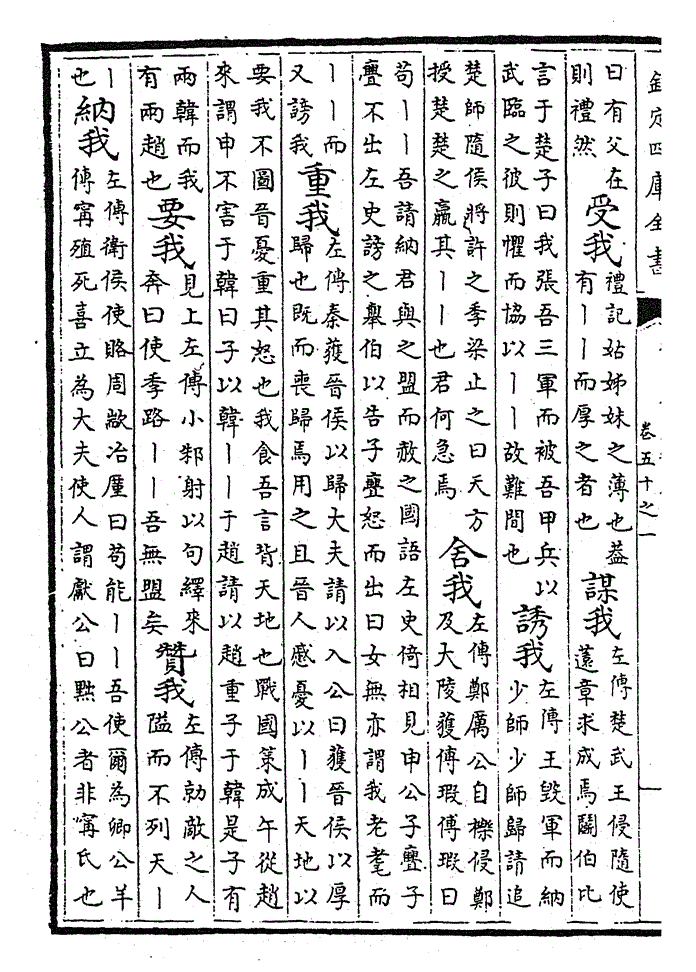 欽定四庫全書
卷五十之一
曰有父在
則禮然
受我
禮記姑姊妹之薄也葢
有丨丨而厚之者也
謀我
左傳楚武王侵隨使
薳章求成焉鬭伯比
言于楚子曰我張吾三軍而被吾甲兵以
武臨之彼則懼而協以丨丨故難間也
誘我
左傳王毀軍而納
少師少師歸請追
楚師隨侯將許之季梁止之曰天方
授楚楚之羸其丨丨也君何急焉
舍我
左傳鄭厲公自櫟侵鄭
及大陵獲傅瑕傅瑕曰
苟丨丨吾請納君與之盟而赦之國語左史倚相見申公子亹子
亹不出左史謗之舉伯以告子亹怒而出曰女無亦謂我老耄而
丨丨而
又謗我
重我
左傳秦獲晉侯以歸大夫請以入公曰獲晉侯以厚
歸也既而喪歸焉用之且晉人慼憂以丨丨天地以
要我不圖晉憂重其怒也我食吾言背天地也戰國策成午從趙
來謂申不害于韓曰子以韓丨丨于趙請以趙重子于韓是子有
兩韓而我
有兩趙也
要我
見上左傳小邾射以句繹來
奔曰使季路丨丨吾無盟矣
贊我
左傳勍敵之人
隘而不列天丨
丨
也
納我
左傳衛侯使賂周歂冶廑曰苟能丨丨吾使爾為卿公羊
傳寗殖死喜立為大夫使人謂獻公曰黜公者非寗氏也